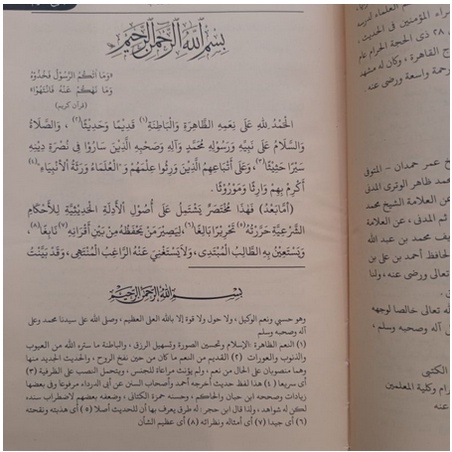 بسم الله الرحمن الرحيم
«وَمَا آتَاكُمُ الرَّسُولُ فَخُذُوهُ
وَمَا نَهَاكُمْ عَنْهُ فَانْتَهُوا»
(قرآن كريم)
الْحَمْدُ لِلَّهِ عَلَى نِعَمِهِ الظَّاهِرَةِ وَالْبَاطِنَةِ (١) قَدِيمًا وَحَدِيثًا (٢) ، وَالصَّلَاةُ
وَالسَّلَامُ عَلَى نَبِيِّهِ وَرَسُولِهِ مُحَمَّدٍ وَآلِهِ وَصَحْبِهِ الَّذِينَ سَارُوا فِي نُصْرَةِ دِينِهِ
سَيْرًا حَثِيثًا (٣)، وَعَلَى أَتْبَاعِهِمُ الَّذِينَ وَرِثُوا عِلْمَهُمْ وَ"الْعُلَمَاءُ وَرَثَةُ الْأَنْبِيَاءِ" (٤)
أَكْرِمْ بِهِمْ وَارِثًا وَمَوْرُوثًا .
(أَمَّا بَعْدُ) فَهَذَا مُخْتَصَرٌ يَشْتَمِلُ عَلَى أُصُولِ الْأَدِلَّةِ الْحَدِيثِيَّةِ لِلْأَحْكَامِ
الشَّرْعِيَّةِ حَرَّرْتُهُ (٥) تَحْرِيرًا بَالِغًا (٦)، لِيَصِيرَ مَنْ يَحْفَظُهُ مِنْ بَيْنِ أَقْرَانِهِ (٧) نَابِغًا (٨)
وَيَسْتَعِينَ بِهِ الطَّالِبُ الْمُبْتَدِي، وَلَا يَسْتَغْنِيَ عَنْهُ الرَّاغِبُ الْمُنْتَهِي، وَقَدْ بَيَّنْتُ
بسم الله الرحمن الرحيم
وهو حسبي ونعم الوكيل ، ولا حول ولا قوة إلا بالله العلي العظيم ، وصلى الله على سيدنا محمد وعلى
آله وصحبه وسلم
(١) النعم الظاهرة الإسلام وتحسين الصورة وتسهيل الرزق ، والباطنة ما ستره الله من العيوب
والذنوب والعورات (٢) القديم من النعم ما كان من حين نفخ الروح ، والحديث الجديد منها
وهما منصوبان على الحال من نعم ، ولم يؤنث مراعاة للجنس ، ويحتمل النصب على الظرفية (٣)
أى سريعا (٤) هذا لفظ حديث أخرجه أحمد وأصحاب السنن عن أبى الدرداء مرفوعا وفى بعضها
زيادات وصححه ابن حبان والحاكم ، وحسنه حمزة الكنانى ، وضعفه بعضهم لاضطراب سنده،
لكن له شواهد ، ولذا قال ابن حجر : له طرق يعرف بها أن للحديث أصلا (٥) أى هذبته ونقحته
(٦) أى جيدا (٧) أى أمثاله ونظرائه (٨) أى عظيم الشأن
العلماء
راء المؤمنين فى الحديث ،
٢٨ ذى الحجة الحرام عام
ج القاهرة ، وكان له مشهد
رحمة واسعة ورضى عنه .
خ عمر حمدان - المتوفى
محمد ظاهر الوترى المدنى
عن العلامة الشيخ محمد
ثم المدنى ، عن العلامة
يف محمد بن عبد الله
الحافظ أحمد بن على بن
تعالى ورضى عنه ، ولنا
ه تعالى خالصا لوجهه
آله وصحبه وسلم ،
الكتبى
رام وكلية المعلمين
عنه